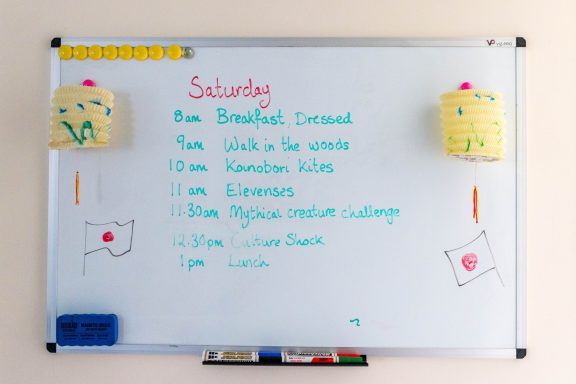 Saturday
8am Breakfast, Dressed
9am Walk in the woods
10am Koinobori Kites
11am Elevenses
11.30am Mythical creature challenge
12.30pm Culture Shock
1pm Lunch